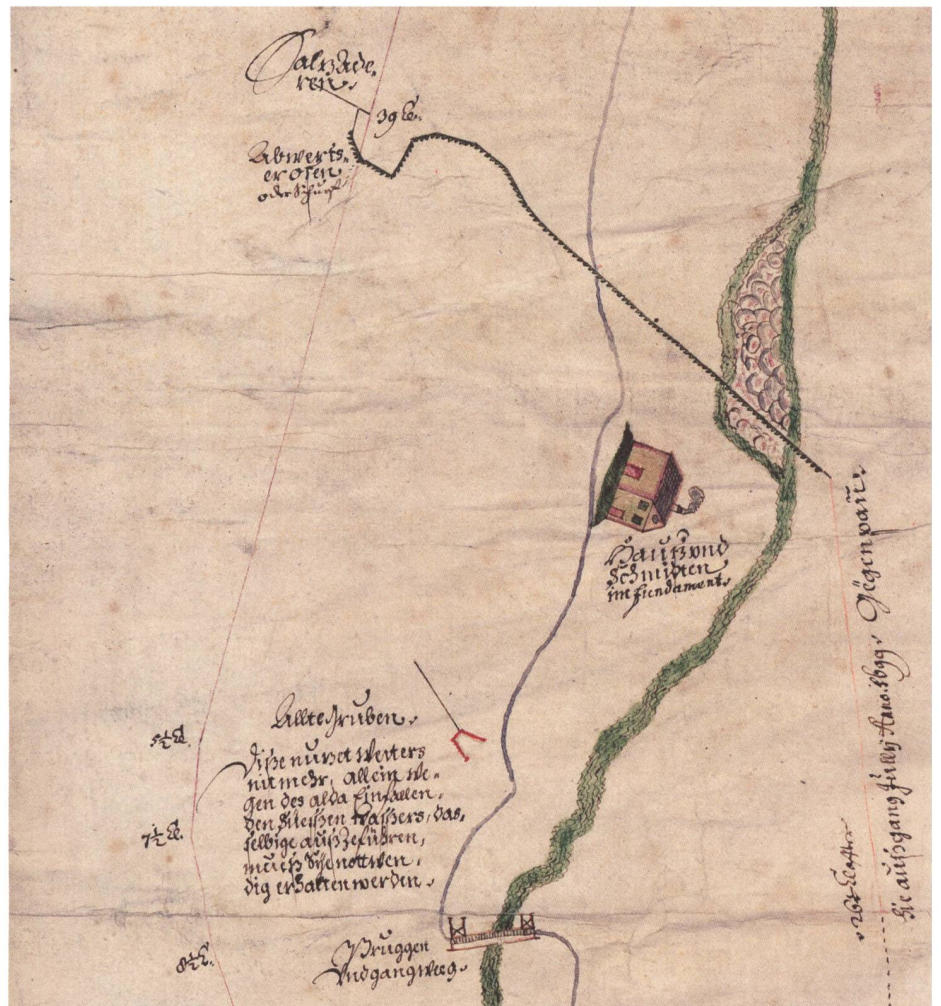 Saltzade-
ren.
39 Lb.
Abwerts-
er ofen
oder Schurf
Hauß vnd
Schmidten
im fundament.
Allte Gruben.
Diße nutzet weiters
nit mehr, allein we-
gen des alda Einfallen-
den Süeßen Waßers, das-
selbige außzeführen,
mueß Sÿe nottwen-
dig erhalten werden.
5½
7½
8½
Bruggen
Vnd gangweeg.
Gegenpaü.
Klaffter
biß außgang Jullÿ Anno 1699.